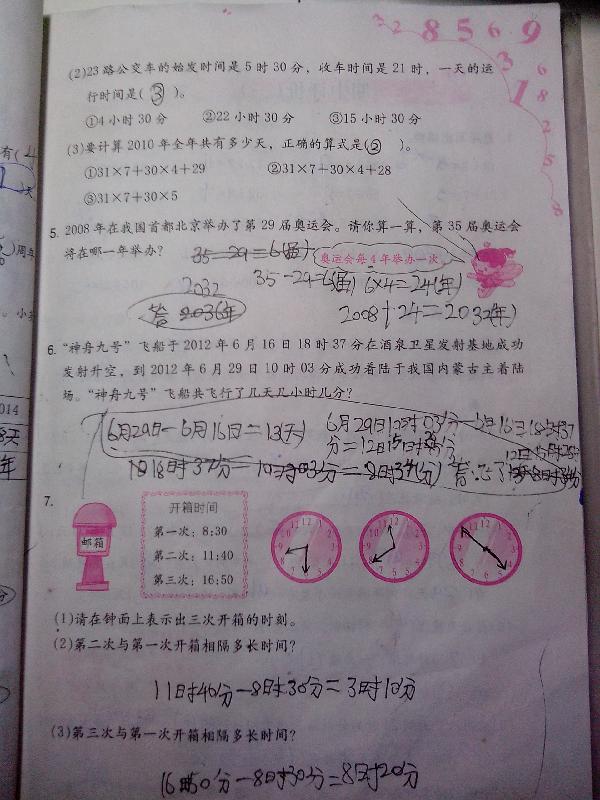 32 8 5 6 9
(2)23路公交车的始发时间是5时30分，收车时间是21时，一天的运
行时间是( ③ )。
①4小时30分 ②22小时30分 ③15小时30分
(3)要计算2010年全年共有多少天，正确的算式是(② )。
①31×7+30×4+29 ②31×7+30×4+28
③31×7+30×5
5. 2008年在我国首都北京举办了第29届奥运会。请你算一算，第35届奥运会
将在哪一年举办？ 35-29=6(届)
奥运会每4年举办一次
35-29=6(届) 6×4=24(年)
2032
答 2036年
2008+24=2032(年)
6. “神舟九号”飞船于2012年6月16日18时37分在酒泉卫星发射基地成功
发射升空，到2012年6月29日10时03分成功着陆于我国内蒙古主着陆
场。“神舟九号”飞船共飞行了几天几小时几分？
6月29日-6月16日=13(天)
6月29日10时03分-6月16日18时37
分=12日15时
18时37分-10时03分=8时34(分)
7.
邮箱
开箱时间
第一次：8:30
第二次：11:40
第三次：16:50
(1)请在钟面上表示出三次开箱的时刻。
(2)第二次与第一次开箱相隔多长时间？
11时40分-8时30分=3时10分
(3)第三次与第一次开箱相隔多长时间？
16时50分-8时30分=8时20分